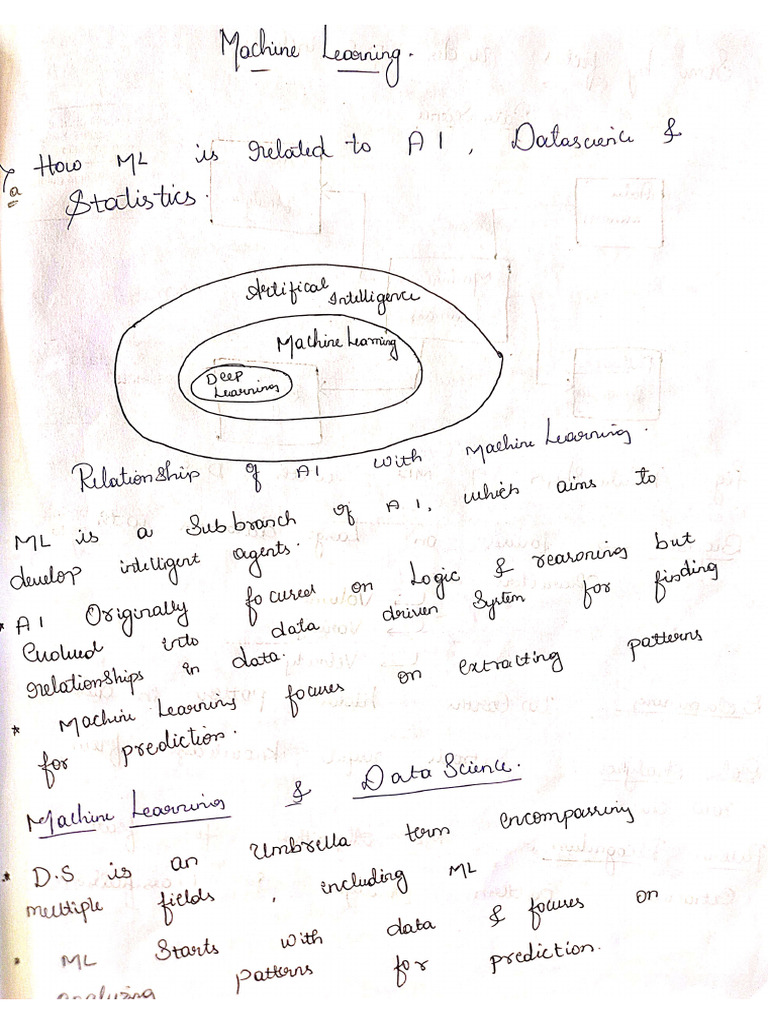 Machine Learning.
How ML is related to AI, Datascience &
a
Statistics.
Artifical
Intelligence
Machine Learning
Deep
Learning
Relationship of AI with Machine Learning.
ML is a Subbranch of AI, which aims to
develop intelligent agents.
* AI Originally focused on Logic & reasoning but
Evolved into data driven System for finding
relationships in data.
* Machine Learning focuses on extracting patterns
for prediction.
Machine Learning & Data Science.
* D.S is an Umbrella term encompassing
multiple fields, including ML
• ML Starts with data & focuses on
analyzing patterns for prediction.